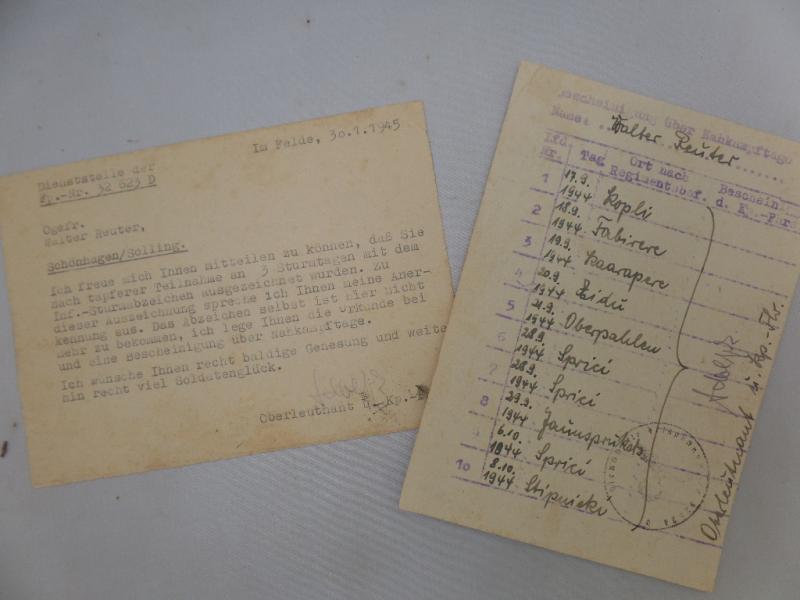 Im Felde, 30.1.1945
Dienststelle der
Fp.-Nr. 32 623 D
Ogefr.
Walter Reuter,
Schönhagen/Solling.
Ich freue mich Ihnen mitteilen zu können, daß Sie
nach tapferer Teilnahme an 3 Sturmtagen mit dem
Inf.-Sturmabzeichen ausgezeichnet wurden. Zu
dieser Auszeichnung spreche ich Ihnen meine Aner-
kennung aus. Das Abzeichen selbst ist hier nicht
mehr zu bekommen, ich lege Ihnen die Urkunde bei
und eine Bescheinigung über Nahkampftage.
Ich wünsche Ihnen recht baldige Genesung und weite
hin recht viel Soldatenglück.
Oberleutnant u. Kp.-
Bescheinigung über Nahkampftage
Name: Walter Reuter
Lfd. Nr. Tag Ort nach Regimentsbef. Beschein. d. Kp.-Führ
1 17.9. 1944 Kopli
2 18.9. 1944 Tabirere
3 19.9. 1944 Kaarapere
4 20.9. 1944 Pidu
5 21.9. 1944 Oberpahlen
6 28.9. 1944 Sprici
7 28.9. 1944 Sprici
8 29.9. 1944
9 6.10. 1944 Sprici
10 8.10. 1944 Stipnieki
Oberleutnant u. Kp.-Fhr.